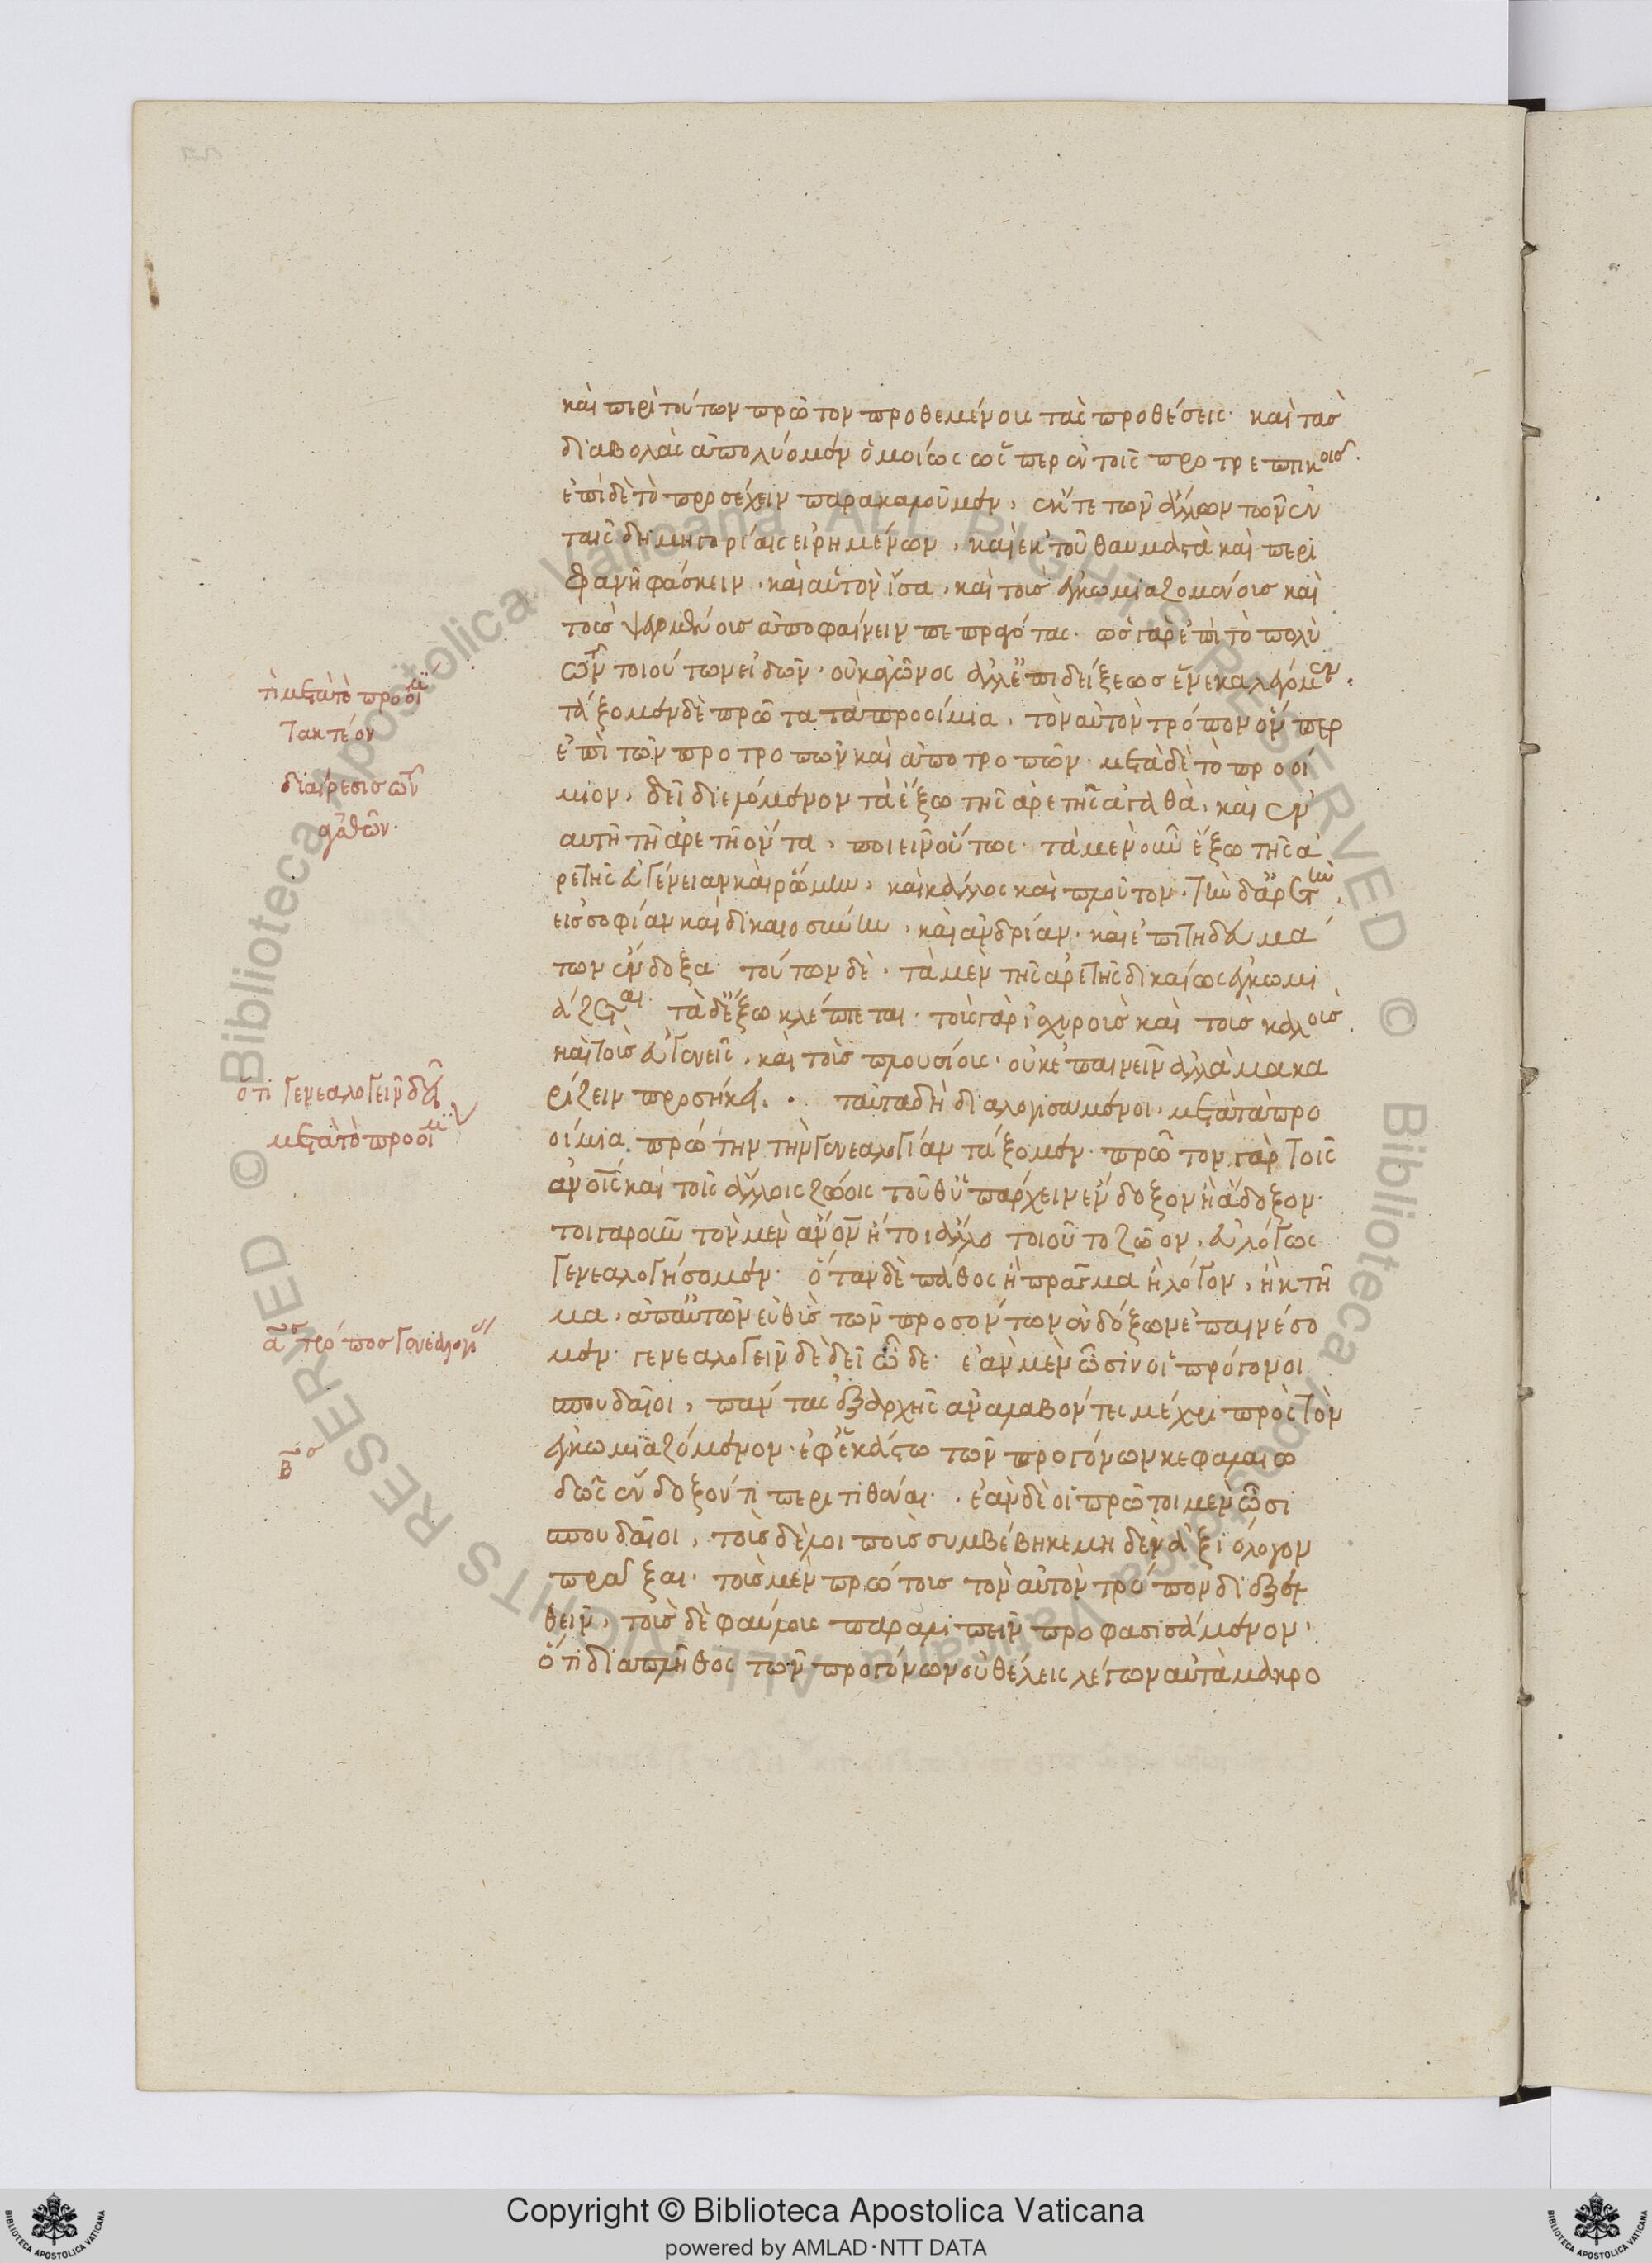 καὶ περὶ τούτων πρῶτον προθεμένοις τὰς προθέσεις· καὶ τὰσ
διαβολὰς ἀπολυόμεν ὁμοίως ὥσπερ ἐν τοῖς προτρεπτικοῖσ.
ἐπὶ δὲ τὸ προσέχειν παρακαλοῦμεν, ἔκ τε τῶν ἄλλων τῶν ἐν
ταῖς δημηγορίαις εἰρημένων, καὶ ἐκ τοῦ θαυμαστὰ καὶ περι
φανῆ φάσκειν, καὶ αὐτὸν ἴσα, καὶ τοῖσ ἐγκωμιαζομένοισ καὶ
τοῖσ ψεγομένοισ ἀποφαίνειν πεπραγότας. ὡσ γὰρ ἐπὶ τὸ πολὺ
τῶν τοιούτων εἰδῶν, οὐκ ἀγῶνος ἀλλ' ἐπιδείξεωσ ἕνεκα λέγομεν.
τάξομεν δὲ πρῶτα τὰ προοίμια, τὸν αὐτὸν τρόπον ὅνπερ
ἐπὶ τῶν προτροπῶν καὶ ἀποτροπῶν. μετὰ δὲ τὸ προοί
μιον, δεῖ διελόμενον τὰ ἔξω τῆς ἀρετῆς ἀγαθὰ, καὶ ἐν
αὐτῇ τῇ ἀρετῇ ὄντα, ποιεῖν οὕτως. τὰ μὲν οὖν ἔξω τῆς ἀ
ρετῆς εὐγένειαν καὶ ῥώμην, καὶ κάλλος καὶ πλοῦτον. τὴν δ' ἀρετὴν
εἰσ σοφίαν καὶ δικαιοσύνην, καὶ ἀνδρίαν, καὶ ἐπιτηδευμά
των ἔνδοξα. τούτων δὲ, τὰ μὲν τῆς ἀρετῆς δικαίως ἐγκωμι
άζεται. τὰ δ' ἔξω κλέπτεται. τοῖς γὰρ ἰσχυροῖσ καὶ τοῖσ καλοῖσ
καὶ τοῖσ εὐγενεῖς, καὶ τοῖσ πλουσίοις, οὐκ ἐπαινεῖν ἀλλὰ μακα
ρίζειν προσήκει. ταῦτα δὴ διαλογισάμενοι, μετὰ τὰ προ
οίμια πρώτην τὴν γενεαλογίαν τάξομεν. πρῶτον γὰρ τοῖς
ἀνοις καὶ τοῖς ἄλλοις ζώοις τοῦθ' ὑπάρχειν ἔνδοξον ἢ ἄδοξον.
τοιγαροῦν τὸν μὲν ἄνον ἤ τοι ἄλλο τοιοῦτο ζῶον, εὐλόγως
γενεαλογήσομεν. ὅταν δὲ πάθος ἢ πρᾶγμα ἢ λόγον, ἢ κτῆ
μα, ἀπ' αὐτῶν εὐθὺσ τῶν προσόντων ἐνδόξων ἐπαινέσο
μεν. γενεαλογεῖν δὲ δεῖ ὧδε. ἐὰν μὲν ὦσιν οἱ πρόγονοι
σπουδαῖοι, πάντας ἐξαρχῆς ἀναλαβόντες μέχρι πρὸς τὸν
ἐγκωμιαζόμενον, ἐφ' ἑκάστω τῶν προγόνων κεφαλαιω
δῶς ἔνδοξόν τι περιτιθέναι. ἐὰν δὲ οἱ πρῶτοι μὲν ὦσι
σπουδαῖοι, τοῖσ δὲ λοιποῖσ συμβέβηκε μηδὲν ἀξιόλογον
πρᾶξαι. τοῖσ μὲν πρώτοισ τὸν αὐτὸν τρόπον διεξελ
θεῖν, τοῖσ δὲ φαύλοις παραλιπεῖν προφασισάμενον,
ὅτι διὰ πλῆθος τῶν προγόνων οὐ θέλεις λέγων αὐτὰ μακρο
τί μετὰ τὸ προοίμ
τακτέον
διαίρεσισ τῶν
ἀγαθῶν.
ὅτι γενεαλογεῖν δεῖ
μετὰ τὸ προοίμ
αοσ τρόποσ γενεαλογ
βοσ
Copyright © Biblioteca Apostolica Vaticana
powered by AMLAD·NTT DATA
© Biblioteca Apostolica Vaticana ALL RIGHTS RESERVED © Biblioteca Apostolica Vaticana ALL RIGHTS RESERVED